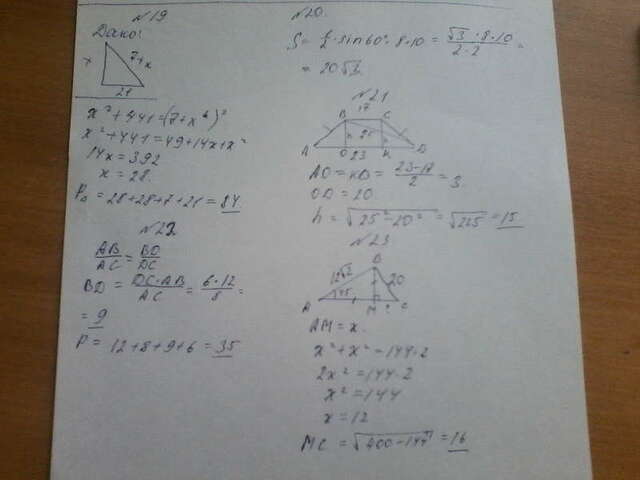 №19
Дано:
7+x
x
21
x² + 441 = (7+x)²
x² + 441 = 49 + 14x + x²
14x = 392
x = 28.
P△ = 28+28+7+21 = 84
№22
AB/AC = BD/DC
BD = DC·AB/AC = 6·12/8 =
= 9
P = 12+8+9+6 = 35
№20.
S = ½·sin60°·8·10 = √3·8·10/2·2 =
= 20√3.
№21
17
B C
25
A O K D
23
AO = KD = 23-17/2 = 3.
OD = 20
h = √25²-20² = √225 = 15
№23
B
12√2 20
45°
A M ? C
AM = x.
x² + x² = 144·2
2x² = 144·2
x² = 144
x = 12
MC = √400-144 = 16